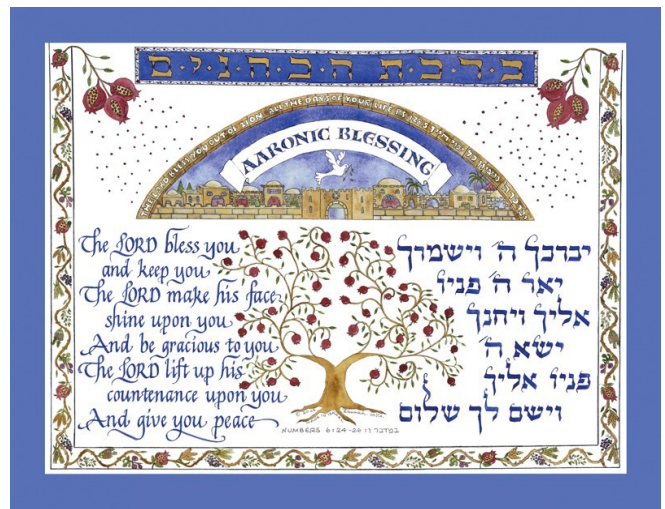 ברכת הכהנים
THE LORD BLESS YOU OUT OF ZION ALL THE DAYS OF YOUR LIFE PS 128:5
AARONIC BLESSING
The LORD bless you
and keep you
The LORD make his face
shine upon you
And be gracious to you
The LORD lift up his
countenance upon you
And give you peace
יברכך ה׳ וישמרך
יאר ה׳ פניו
אליך ויחנך
ישא ה׳
פניו אליך
וישם לך שלום
NUMBERS 6:24-26 במדבר ו׳